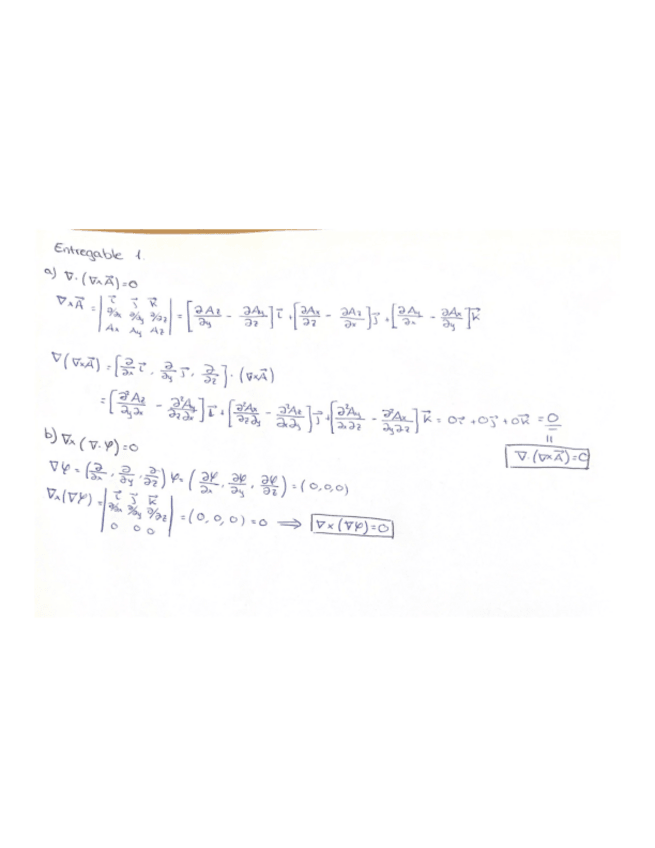 Entregable 1.
a) ∇·(∇×A⃗)=0
∇×A⃗ = | i⃗ j⃗ k⃗ ; ∂/∂x ∂/∂y ∂/∂z ; Ax Ay Az | = [∂Az/∂y - ∂Ay/∂z] i⃗ + [∂Ax/∂z - ∂Az/∂x] j⃗ + [∂Ay/∂x - ∂Ax/∂y] k⃗
∇(∇×A⃗) = [∂/∂x i⃗, ∂/∂y j⃗, ∂/∂z]·(∇×A⃗)
= [∂²Az/∂y∂x - ∂²Ay/∂z∂x] i⃗ + [∂²Ax/∂z∂y - ∂²Az/∂x∂y] j⃗ + [∂²Ay/∂x∂z - ∂²Ax/∂y∂z] k⃗ = 0i⃗ + 0j⃗ + 0k⃗ = 0
∇·(∇×A⃗)=0
b) ∇×(∇·φ)=0
∇φ = (∂/∂x, ∂/∂y, ∂/∂z) φ = (∂φ/∂x, ∂φ/∂y, ∂φ/∂z) = (0,0,0)
∇×(∇φ) = | i⃗ j⃗ k⃗ ; ∂/∂x ∂/∂y ∂/∂z ; 0 0 0 | = (0,0,0) = 0 ⟹ ∇×(∇φ)=0